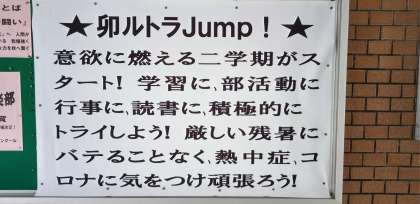 ★卯ルトラJump！★
意欲に燃える二学期がス
タート！学習に、部活動に
行事に、読書に、積極的に
トライしよう！厳しい残暑に
バテることなく、熱中症、コ
ロナに気をつけ頑張ろう！